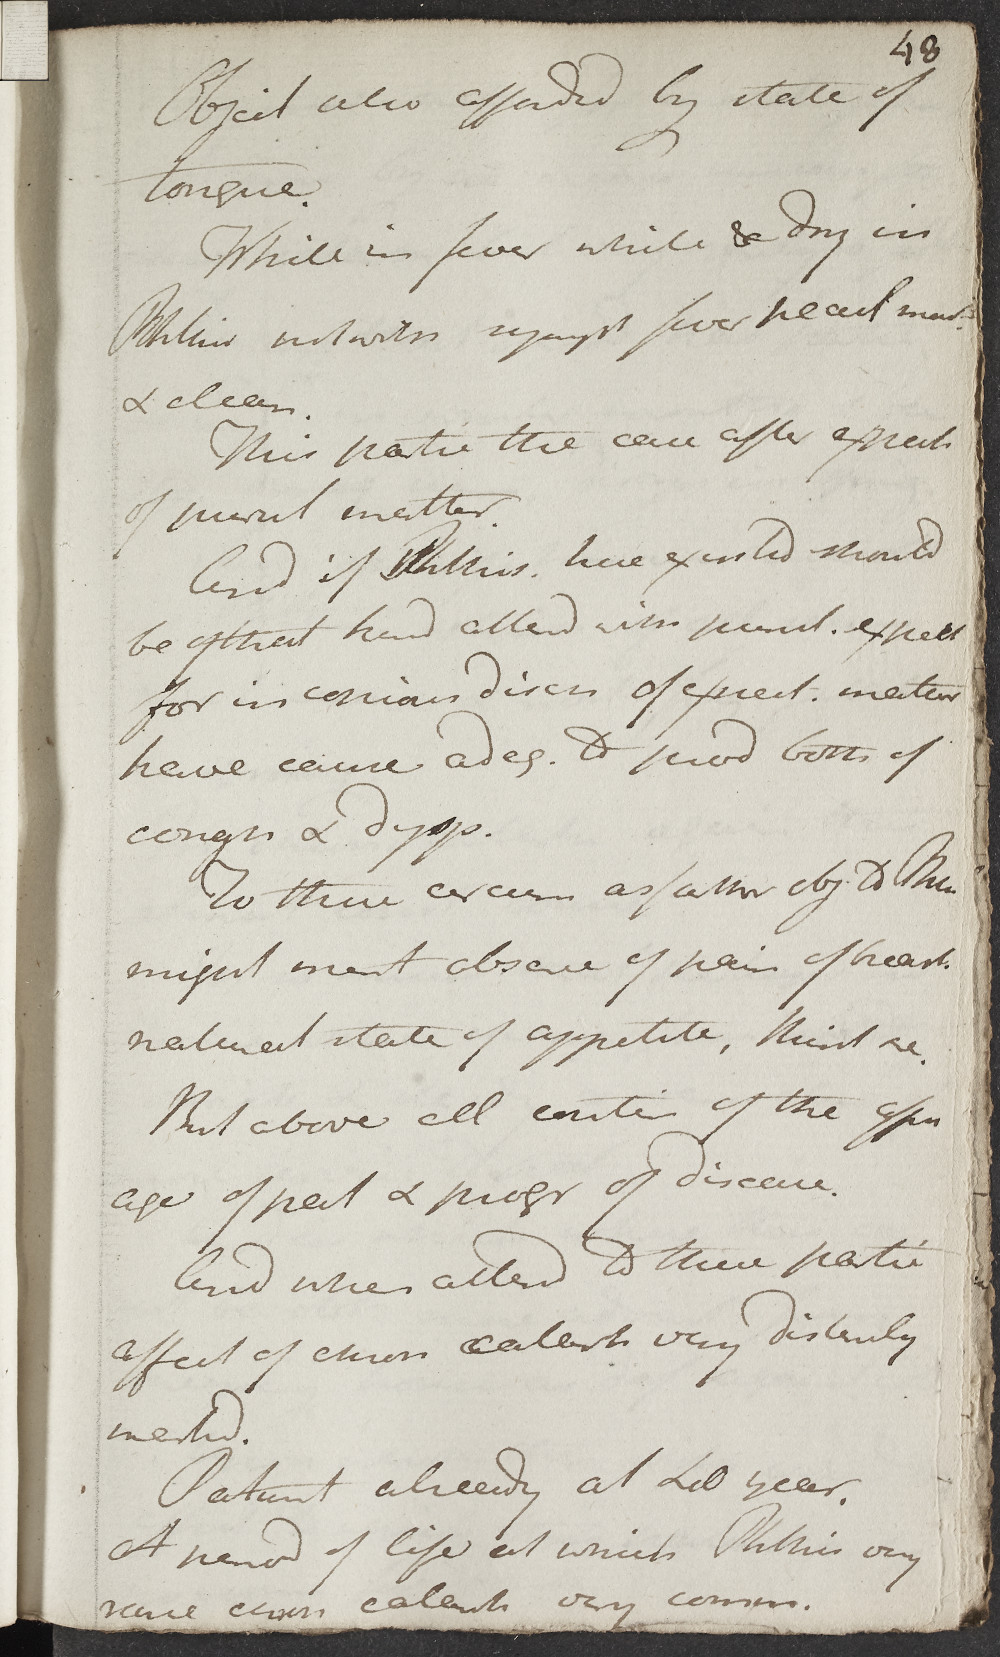 48
Object also afforded by state of
tongue.
While in fever while & dry in
Phthisis notwiths sympt fever pecul moist
& clean.
This partic the case after expect
of purul matter.
And if Phthisis. have existed should
be of that kind attend with purul. expect
for in copious disch of expect. matter
have cause adeq. to prod both of
cough & dysp.
To these circum as farther obj to Phth
might ment absence of pain of breast
natural state of appetite, thirst &c.
But above all consider of the
age of pat & progr of disease.
And when attend to these partic
affect of chron catarrh very distinctly
marked.
Patient already at 40 year.
A period of life at which Phthisis very
rare chron catarrh very comm.